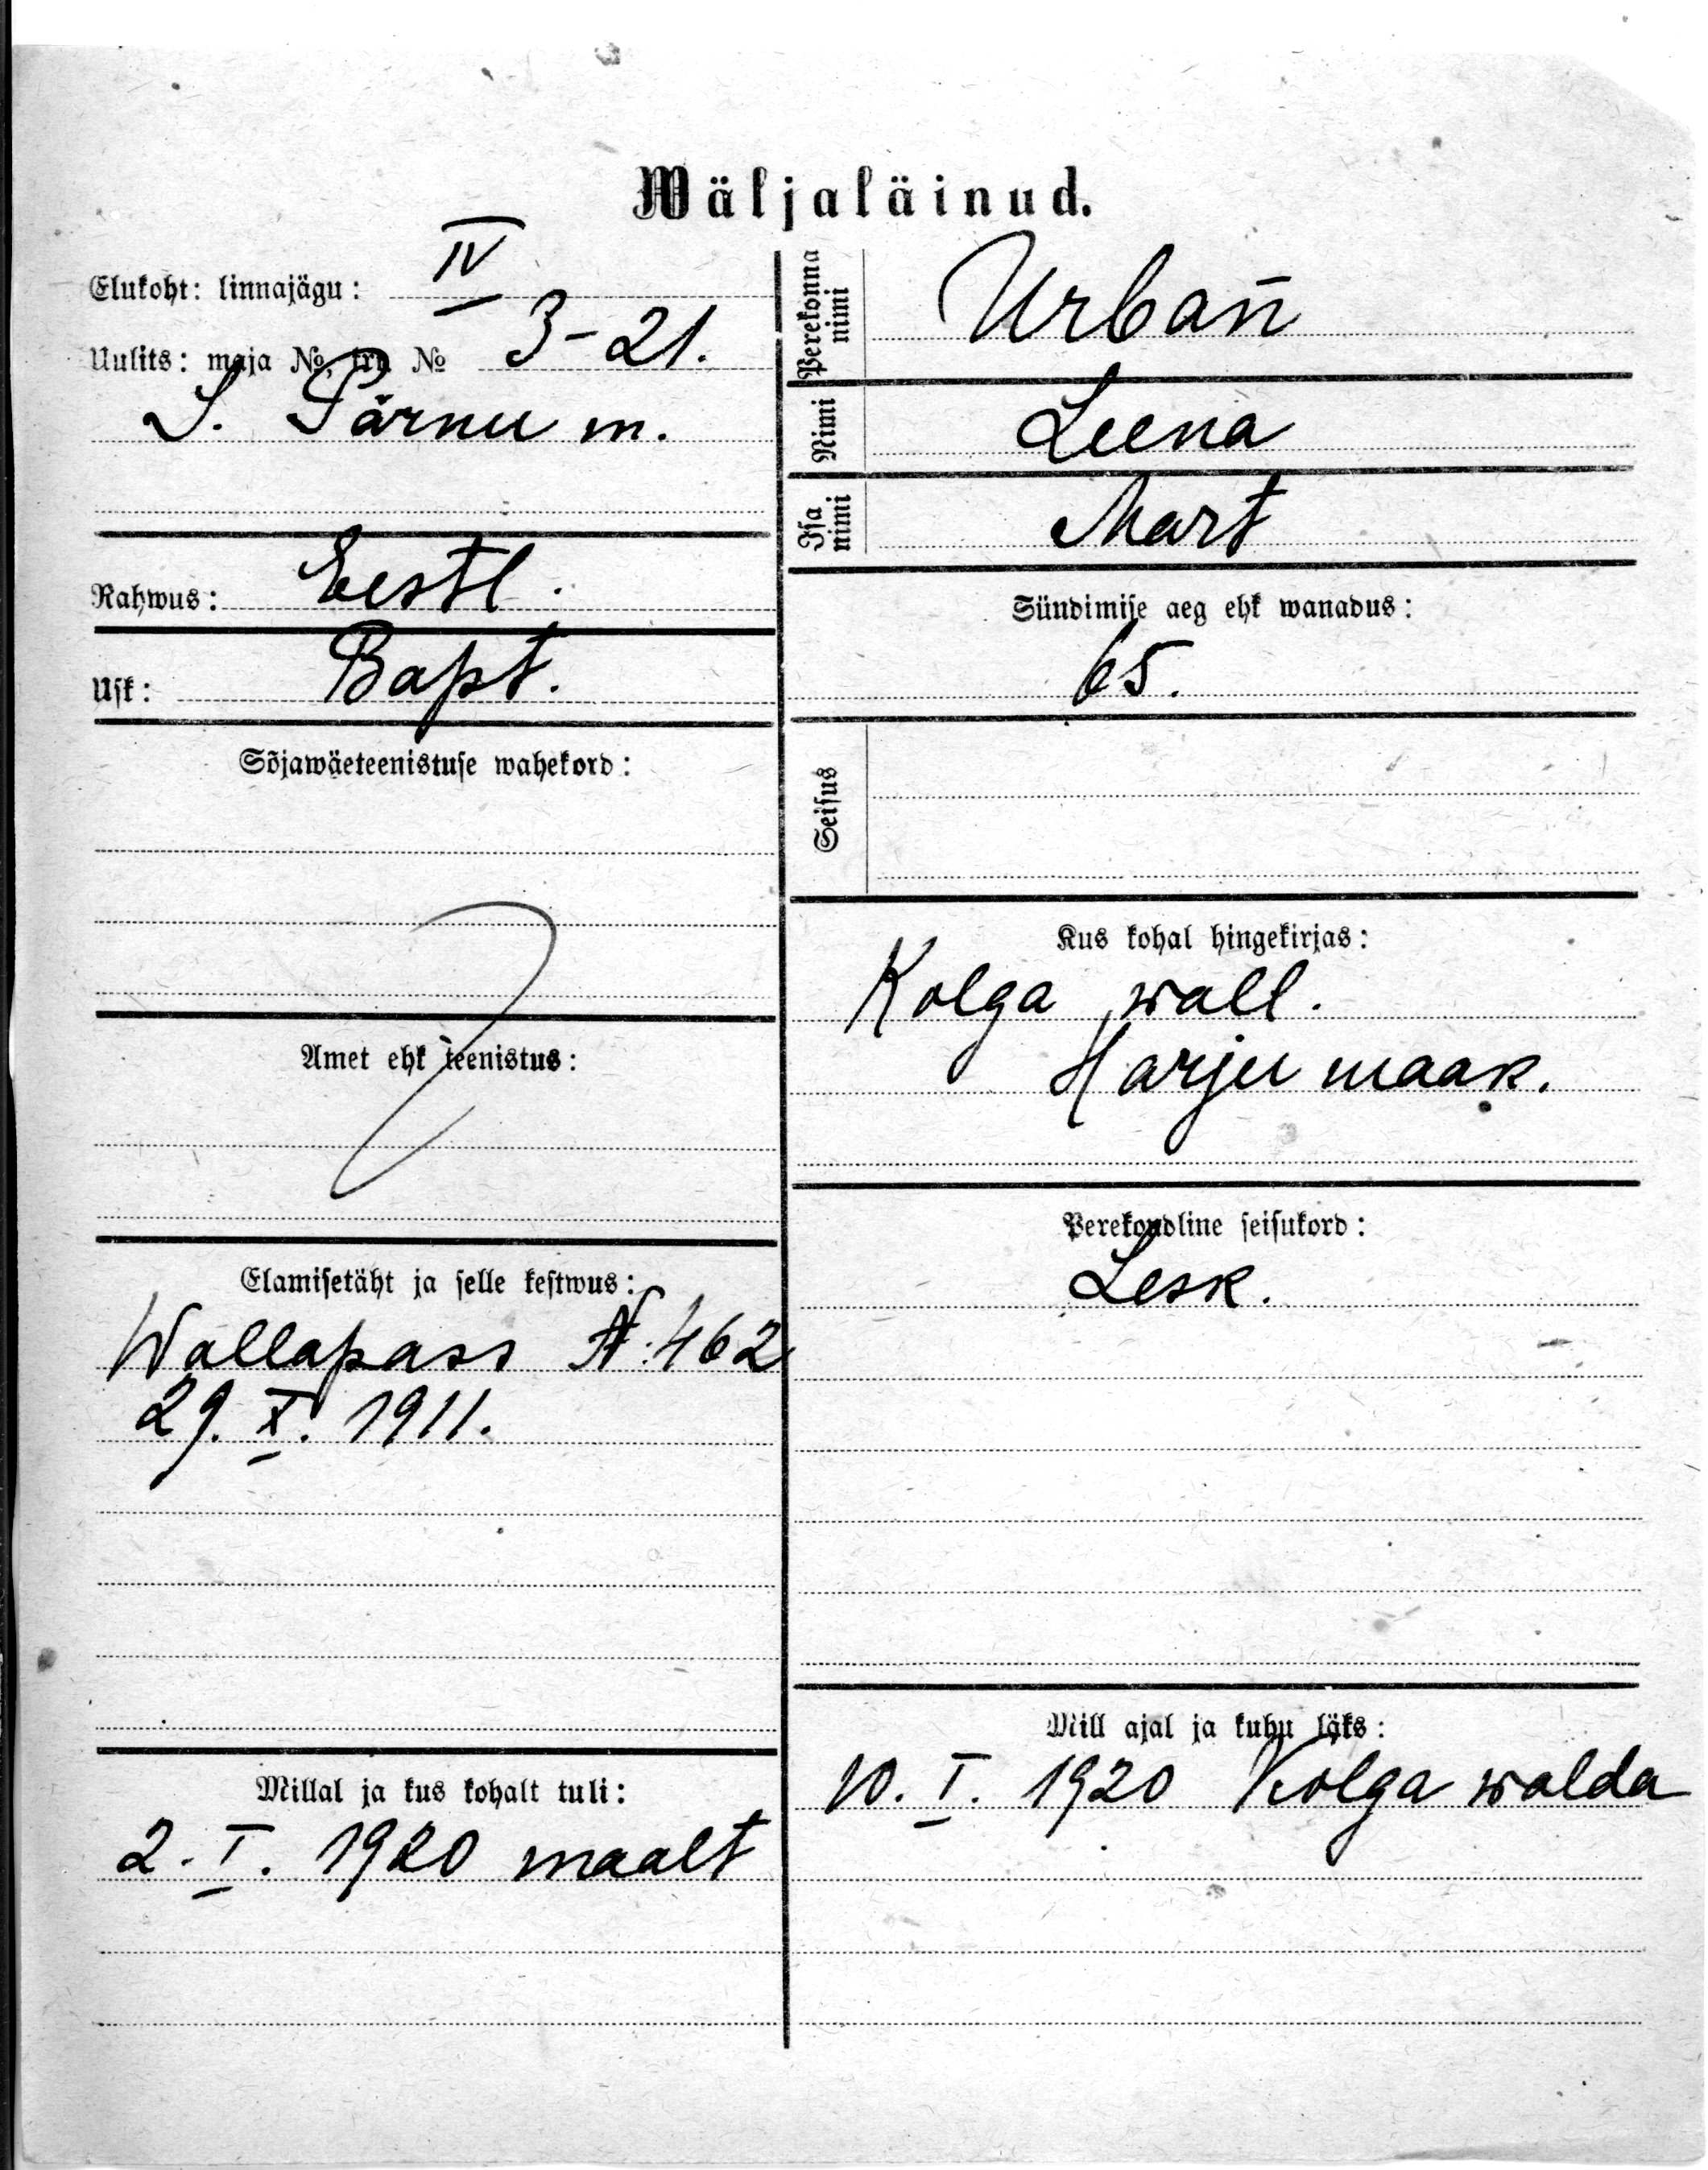 Wäljaläinud.
Elukoht: linnajägu: IV
Uulits: maja №, krt № 3-21.
S. Pärnu m.
Rahwus: Eestl.
Usk: Bapt.
Sõjawäeteenistuse wahekord:
Amet ehk teenistus:
Elamisetäht ja selle kestwus:
Wallapass №: 462
29. X. 1911.
Millal ja kus kohalt tuli:
2. I. 1920 maalt
Perekonna nimi Urban
Nimi Leena
Isa nimi Mart
Sündimise aeg ehk wanadus:
65.
Seisus
Kus kohal hingekirjas:
Kolga wall.
Harju maak.
Perekondline seisukord:
Lesk.
Mill ajal ja kuhu läks:
10. I. 1920 Kolga walda